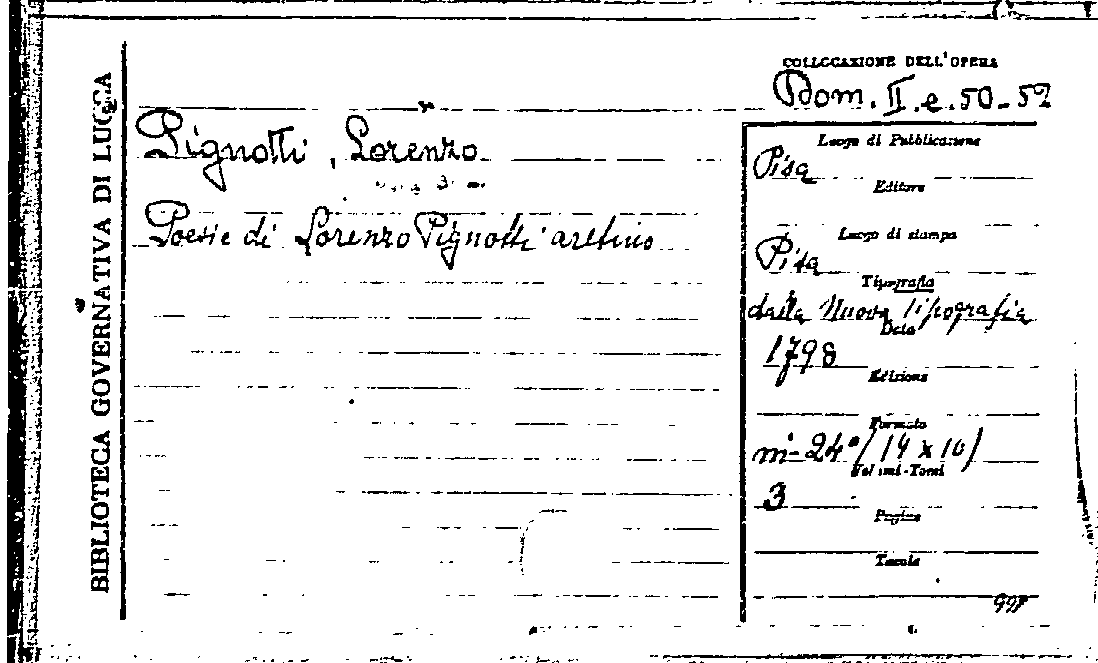 BIBLIOTECA GOVERNATIVA DI LUCCA
COLLOCAZIONE DELL'OPERA
Dom. II. e. 50-52
Pignotti, Lorenzo
Poesie di Lorenzo Pignotti aretino
Luogo di Pubblicazione
Pisa
Editore
Luogo di stampa
Pisa
Tipografia
dalla Nuova Tipografia
Data
1798
Edizione
Formato
in-24° (14 x 10)
Volumi-Tomi
3
Pagine
Tavole